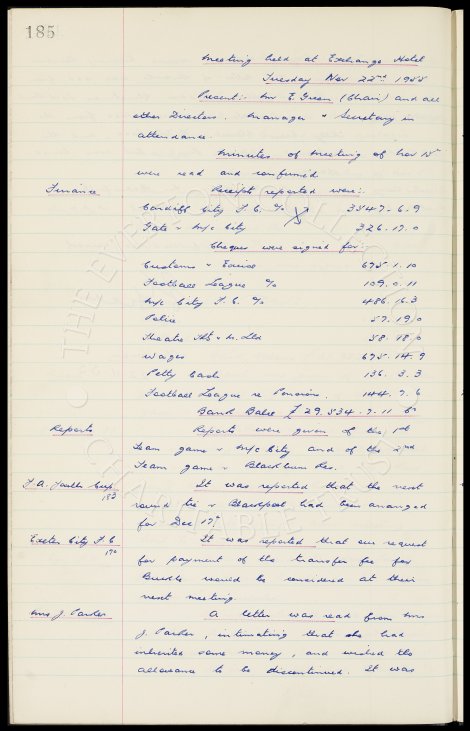 185
Meeting held at Exchange Hotel
Tuesday Nov 22nd 1955
Present:- Mr E. Green (Chair) and all
other Directors. Manager & Secretary in
attendance.
Minutes of Meeting of Nov 15th
were read and confirmed.
Finance
Receipts reported were:-
Cardiff City F.C. % 3547. 6. 9
Gate v M/c City 326. 17. 0
Cheques were signed for:-
Customs & Excise 675. 1. 10
Football League % 109. 0. 11
M/c City F.C. % 486. 16. 3
Police 57. 19. 0
Theatre & Ltd 58. 18. 0
Wages 675. 14. 9
Petty Cash 136. 3. 3
Football League re Pension. 144. 7. 6
Bank Balce £29,534. 7. 11 Cr
Reports
Reports were given of the 1st
Team game v M/c City and of the 2nd
Team game v Blackburn Res.
F.A. Youth Cup
183
It was reported that the next
round tie v Blackpool had been arranged
for Dec 17th.
Exeter City F.C.
170
It was reported that our request
for payment of the transfer fee for
Buckle would be considered at their
next meeting.
Mrs J. Parker
A letter was read from Mrs
J. Parker, intimating that she had
inherited some money, and wished the
allowance to be discontinued. It was
THE EVERTON COLLECTION
CHARITABLE TRUST